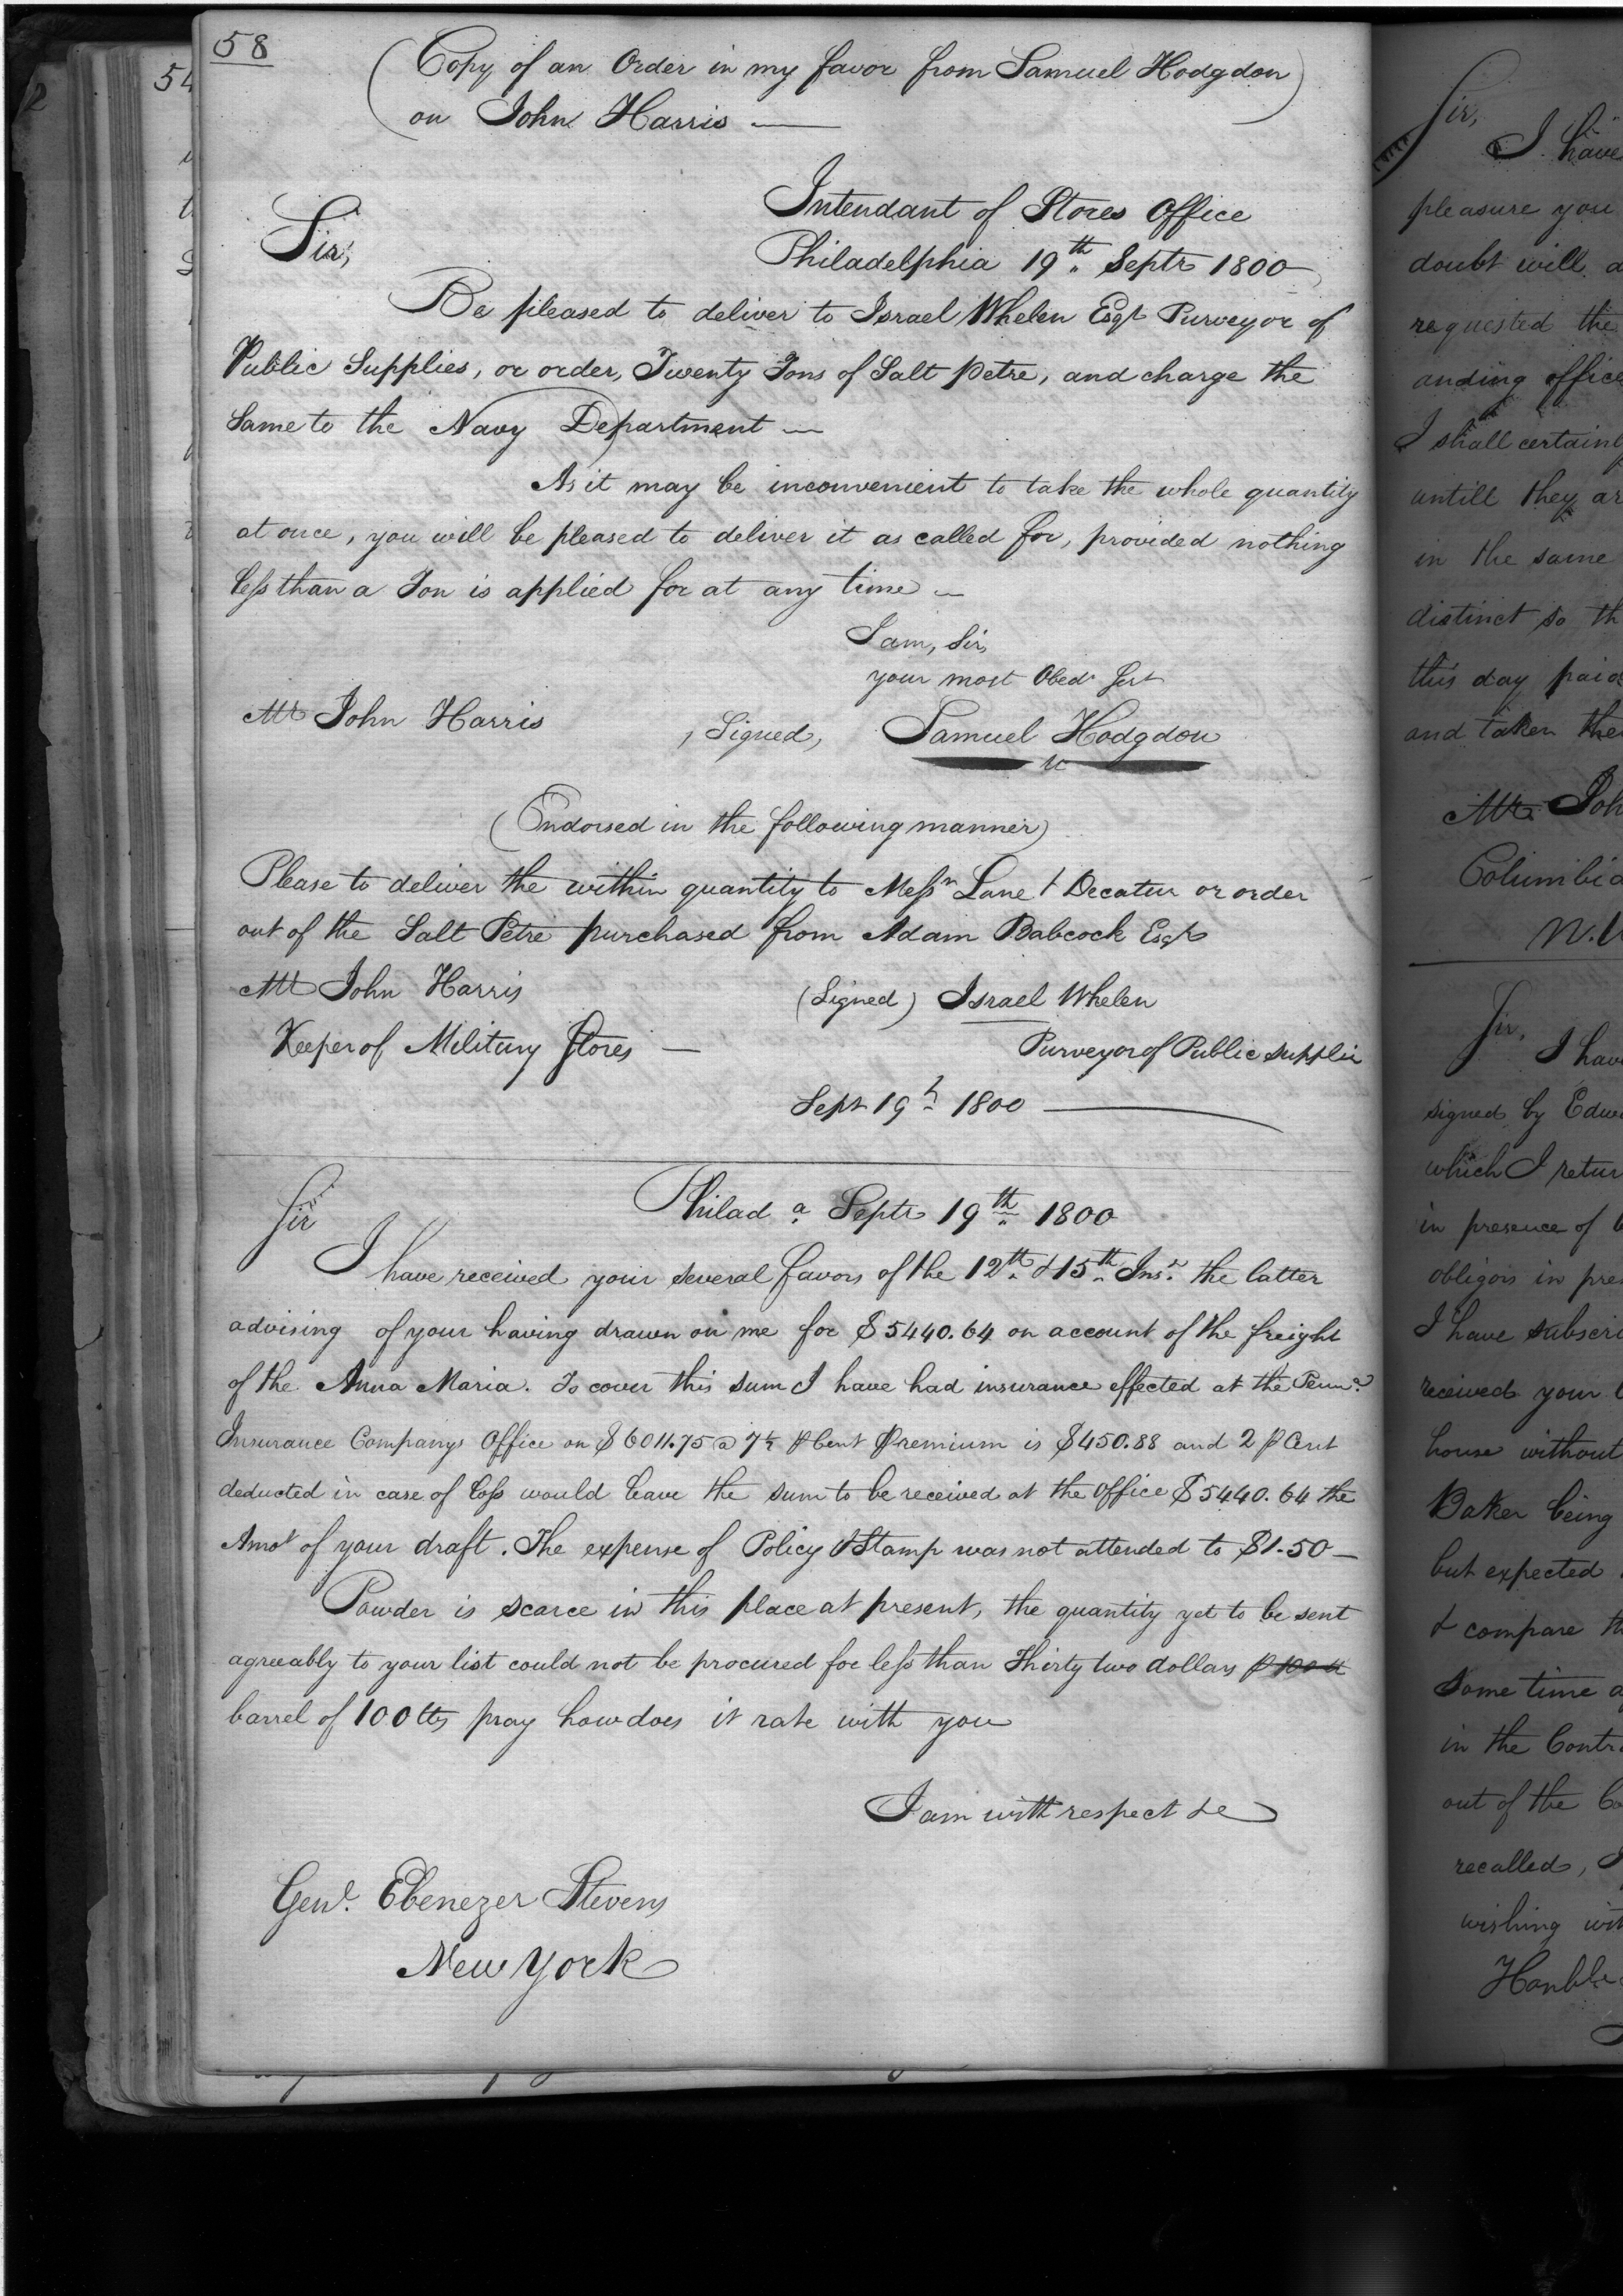 58
(Copy of an Order in my favor from Samuel Hodgdon
on John Harris —)
Intendant of Stores Office
Sir,
Philadelphia 19th Septr 1800
Be pleased to deliver to Israel Whelen Esqr Purveyor of
Public Supplies, or order, Twenty Tons of Salt petre, and charge the
Same to the Navy Department —
As it may be inconvenient to take the whole quantity
at once, you will be pleased to deliver it as called for, provided nothing
less than a Ton is applied for at any time —
I am, Sir,
your most Obedt Sert
Mr John Harris
, Signed, Samuel Hodgdon
(Endorsed in the following manner)
Please to deliver the within quantity to Messrs Lane & Decatur or order
out of the Salt Petre purchased from Adam Babcock Esqr
Mr John Harris
(Signed) Israel Whelen
Keeper of Military Stores —
Purveyor of Public Supplies
Sept 19th 1800 —
Philada Septr 19th 1800
Sir
I have received your several favors of the 12th & 15th Inst the latter
advising of your having drawn on me for $5440.64 on account of the freight
of the Anna Maria. To cover this sum I have had insurance effected at the Penna
Insurance Companys Office on $6011.75 @ 7½ ⅌ Cent Premium is $450.88 and 2 ⅌ Cent
deducted in case of loss would leave the sum to be received at the office $5440.64 the
Amot of your draft. The expense of Policy & Stamp was not attended to $1.50 —
Powder is scarce in this place at present, the quantity yet to be sent
agreeably to your list could not be procured for less than Thirty two dollars ⅌ 100 lb
barrel of 100 lbs pray how does it rate with you
I am with respect &c
Genl. Ebenezer Stevens
New York
54
Sir,
I have
pleasure you
doubt will
requested the
anding office
I shall certainly
untill they
in the same
distinct so
this day paid
and taken
Mr.
Columbia
Sir,
I have
signed by
which I
in presence of
obligors in
I have
received your
house without
Baker being
but expected
& compare
Some time
in the
out of the
recalled,
wishing
Honble